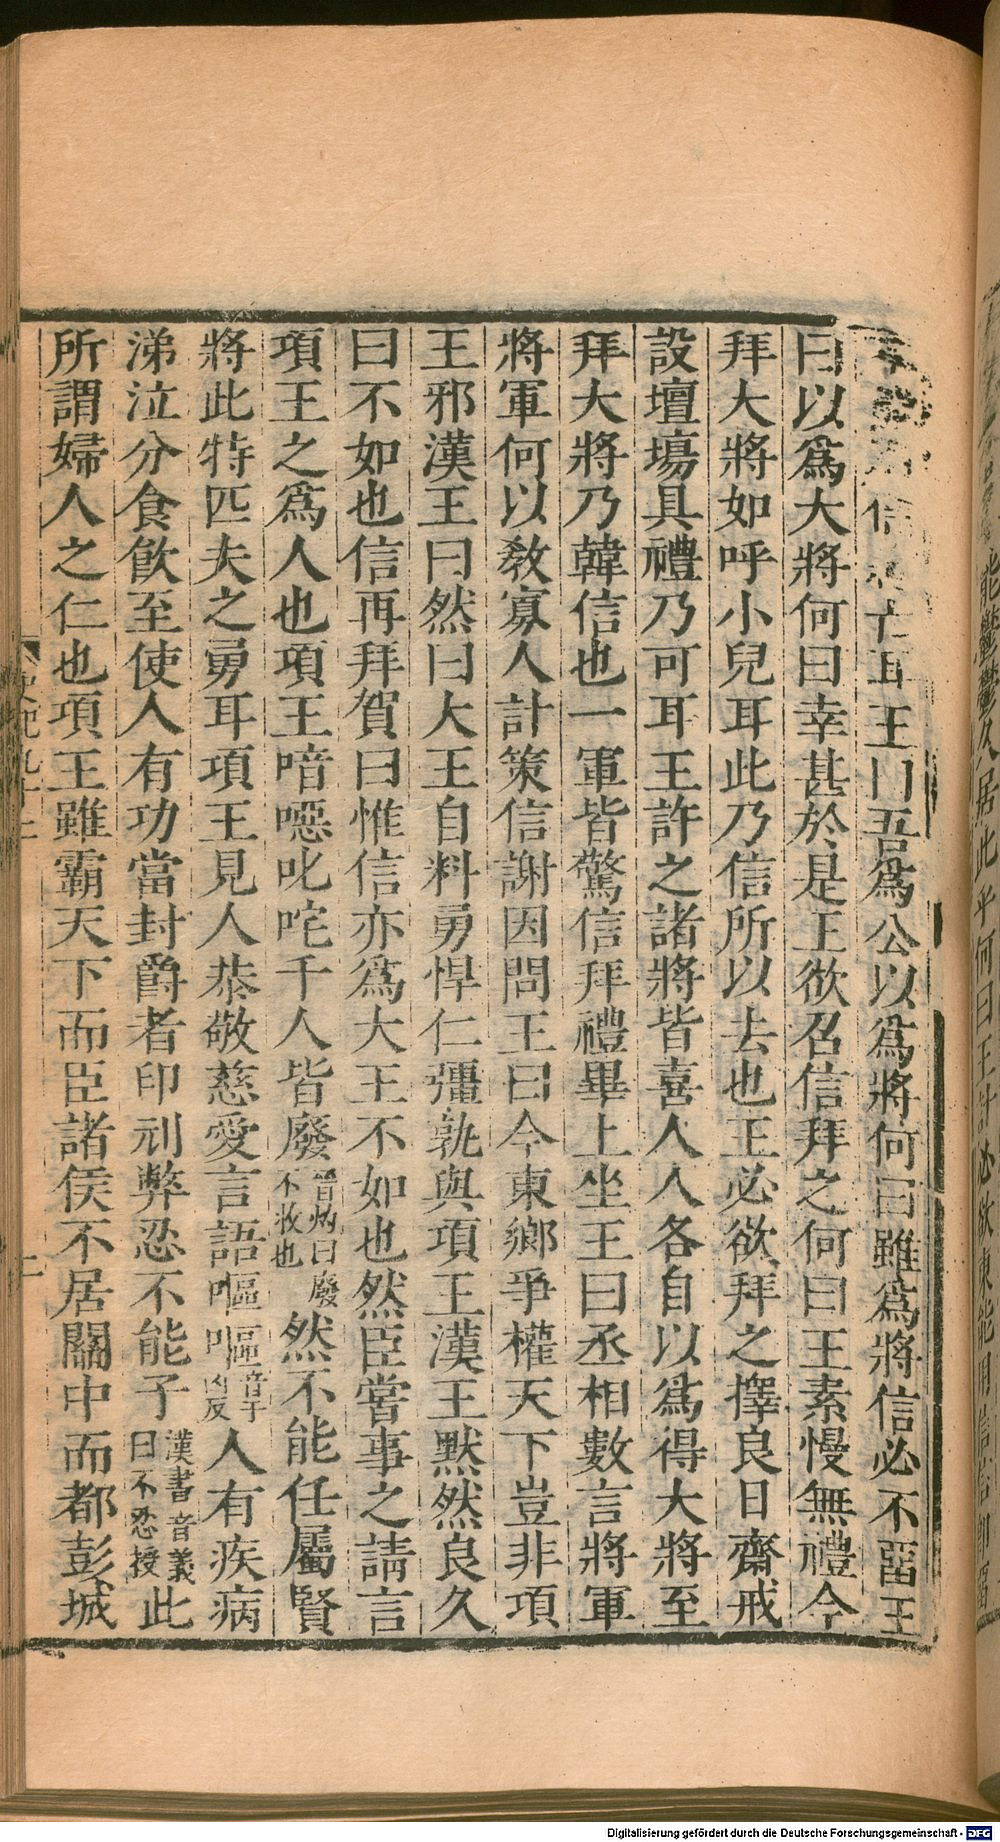 信 亡耳王曰吾爲公以爲將何曰雖爲將信必不畱王
曰以爲大將何曰幸甚於是王欲召信拜之何曰王素慢無禮今
拜大將如呼小兒耳此乃信所以去也王必欲拜之擇良日齋戒
設壇場具禮乃可耳王許之諸將皆喜人人各自以爲得大將至
拜大將乃韓信也一軍皆驚信拜禮畢上坐王曰丞相數言將軍
將軍何以敎寡人計策信謝因問王曰今東鄉爭權天下豈非項
王邪漢王曰然曰大王自料勇悍仁彊孰與項王漢王默然良久
曰不如也信再拜賀曰惟信亦爲大王不如也然臣嘗事之請言
項王之爲人也項王喑噁叱咤千人皆廢晉灼曰廢不收也然不能任屬賢
將此特匹夫之勇耳項王見人恭敬慈愛言語嘔嘔音吁人有疾病
涕泣分食飮至使人有功當封爵者印刓弊忍不能予漢書音義曰不忍授此
所謂婦人之仁也項王雖霸天下而臣諸侯不居關中而都彭城
居此乎何曰王計必欲東能用信信卽畱
Digitalisierung gefördert durch die Deutsche Forschungsgemeinschaft - DFG